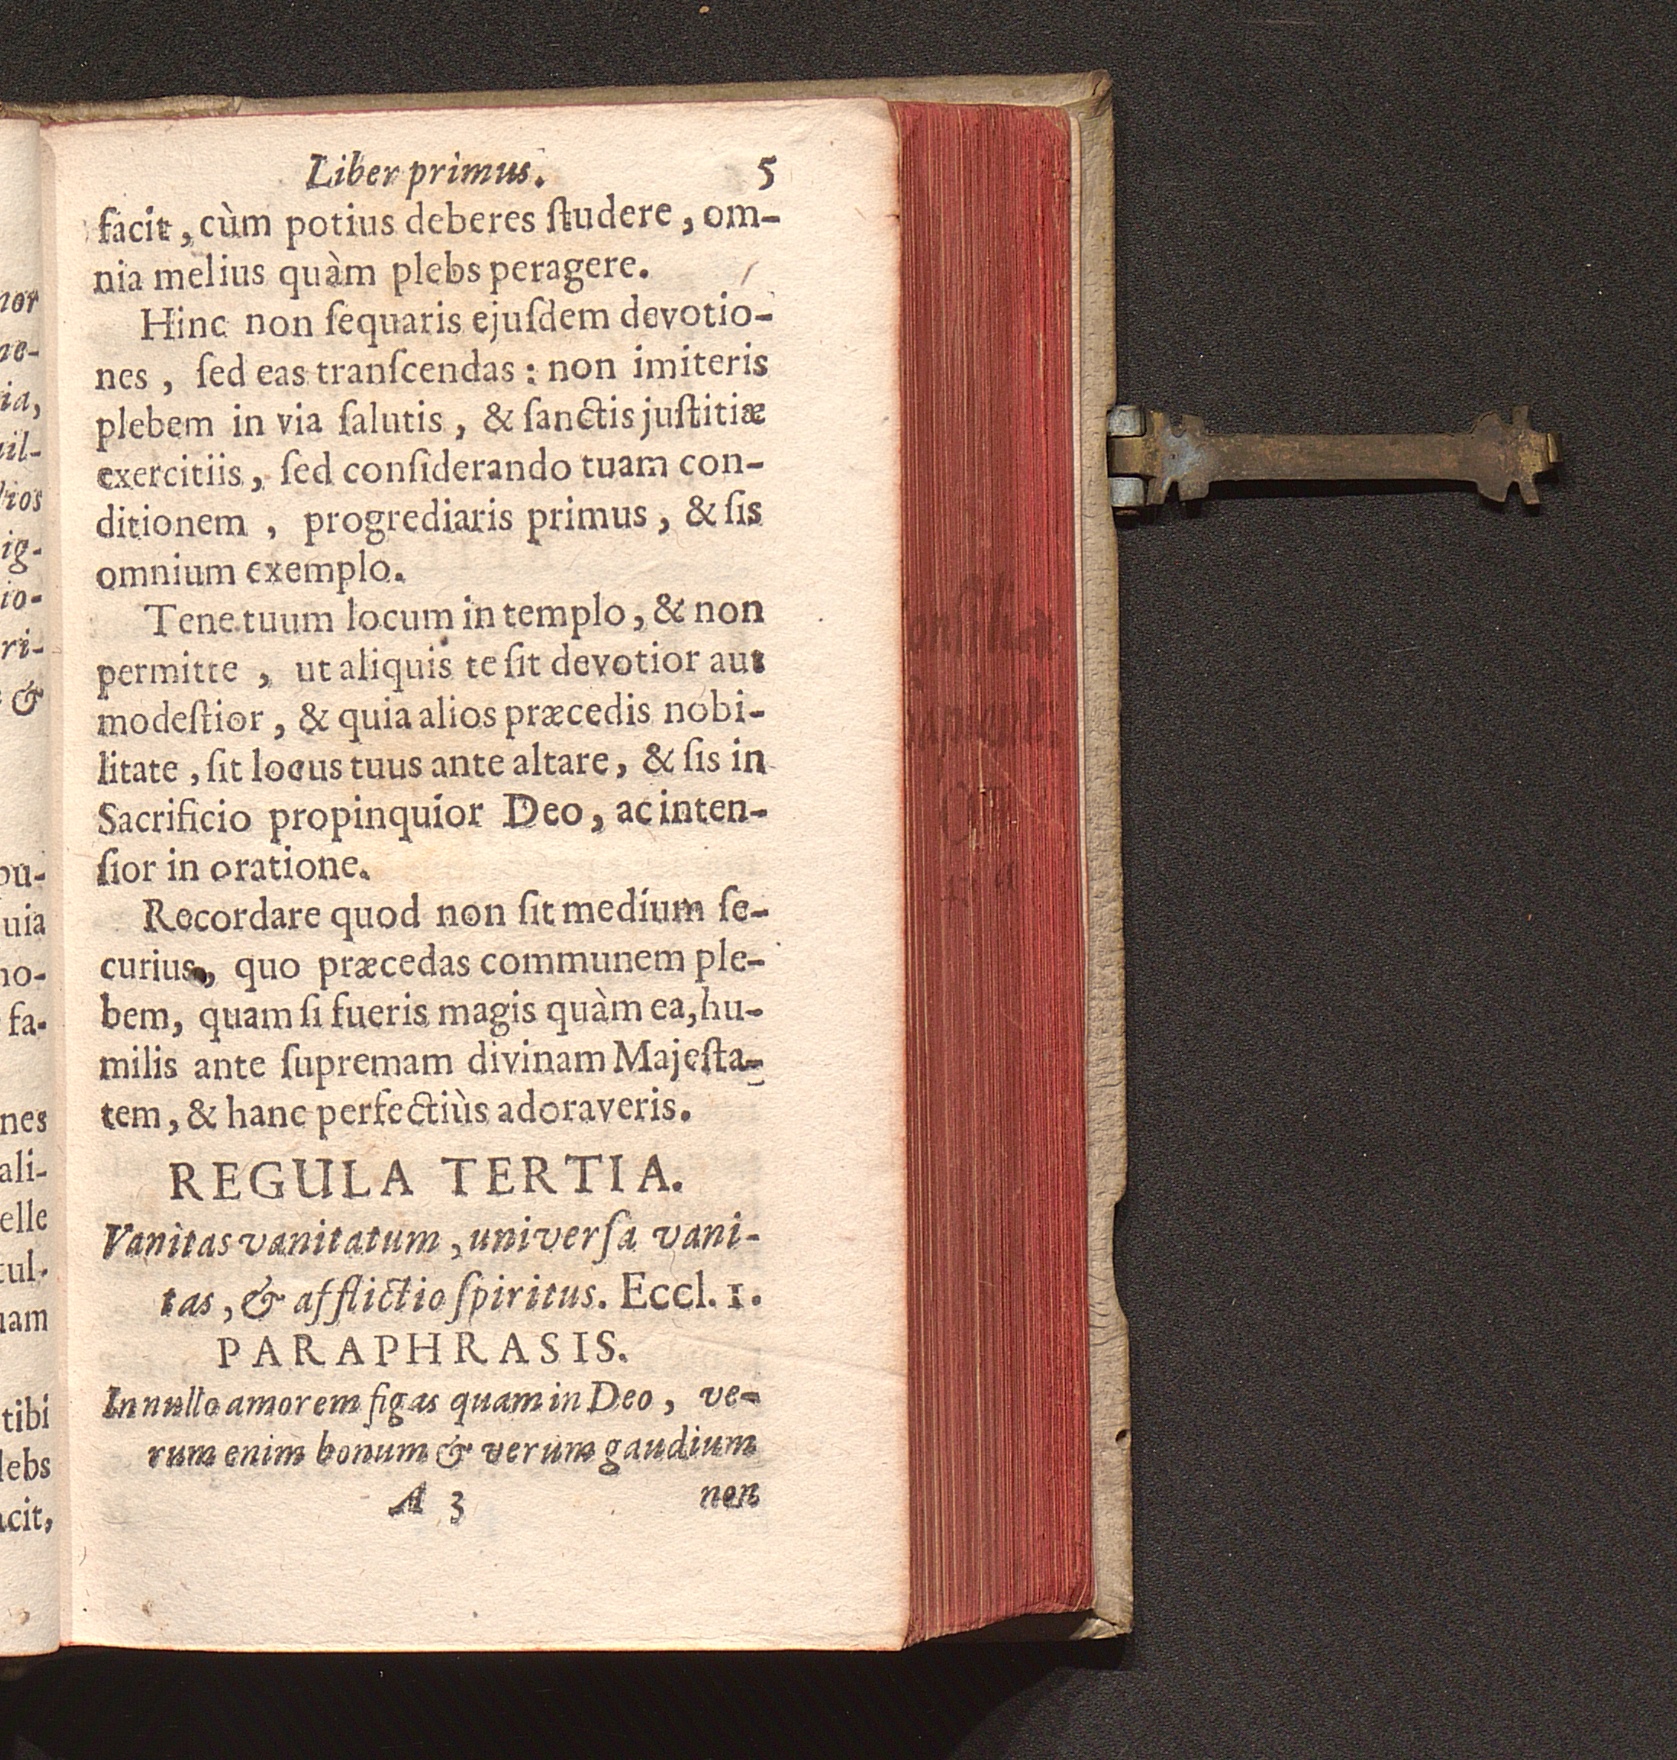 Liber primus. 5
facit, cùm potius deberes ſtudere, om-
nia melius quàm plebs peragere.
Hinc non ſequaris ejuſdem devotio-
nes, ſed eas tranſcendas: non imiteris
plebem in via ſalutis, & ſanctis juſtitiæ
exercitiis, ſed conſiderando tuam con-
ditionem, progrediaris primus, & ſis
omnium exemplo.
Tene tuum locum in templo, & non
permitte, ut aliquis te ſit devotior aut
modeſtior, & quia alios præcedis nobi-
litate, ſit locus tuus ante altare, & ſis in
Sacrificio propinquior Deo, ac inten-
ſior in oratione.
Recordare quod non ſit medium ſe-
curius, quo præcedas communem ple-
bem, quam ſi fueris magis quàm ea, hu-
milis ante ſupremam divinam Majeſta-
tem, & hanc perfectiùs adoraveris.
REGULA TERTIA.
Vanitas vanitatum, univerſa vani-
tas, & afflictio ſpiritus. Eccl. 1.
PARAPHRASIS.
In nullo amorem figas quam in Deo, ve-
rum enim bonum & verum gaudium
A 3 non